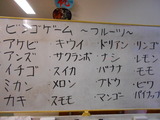 ビンゴゲーム ～フルーツ～
アケビ キウイ ドリアン リンゴ
アンズ サクランボ ナシ レモン
イチゴ スイカ バナナ モモ
ミカン メロン ブドウ ビワ
カキ スモモ マンゴー パイナップル